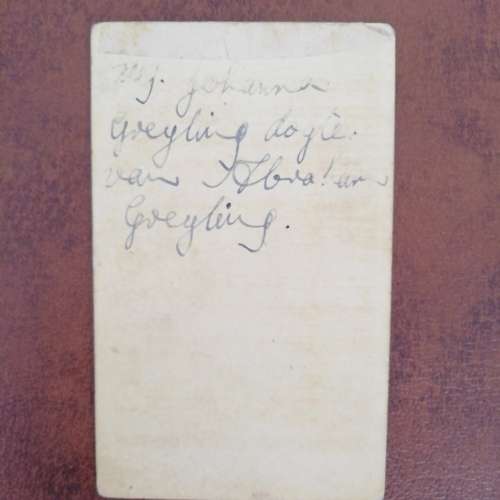 Mej. Johanna
Greyling dogte.
van Abraham
Greyling.